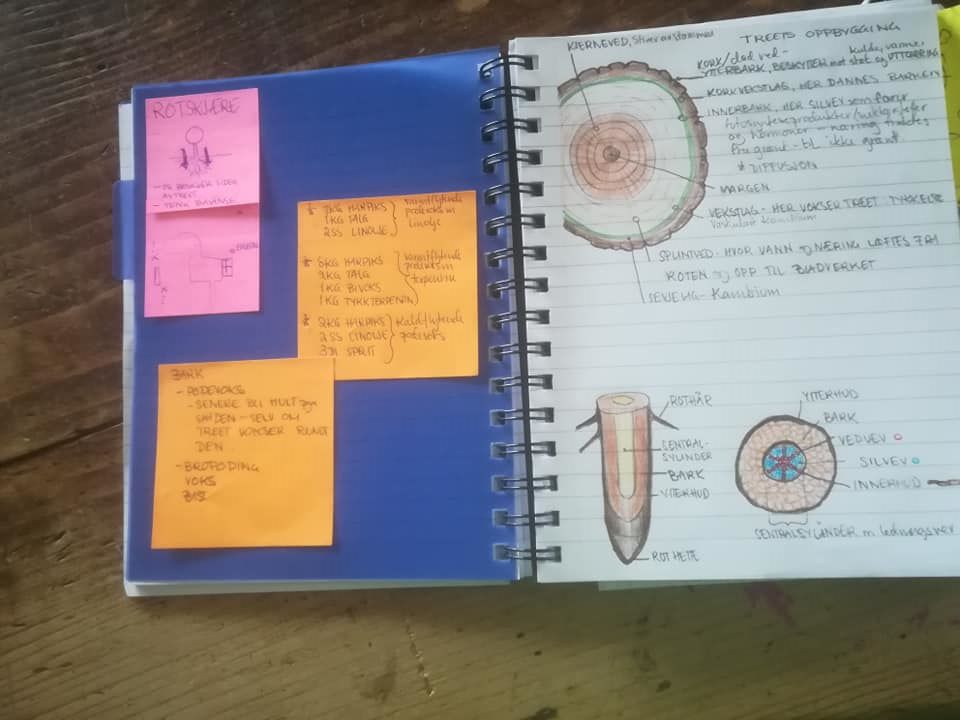 ROTSKJÆRE
AV TREET
* 2KG HARPIKS
1KG TALG
2SS LINOLJE
varmtflytende
podevoks m
linolje
* 8KG HARPIKS
2KG TALG
1KG BIVOKS
1KG TYKKTERPENTIN
varmtflytende
podevoks m
terpentin
* 2KG HARPIKS
2SS LINOLJE
3dl SPRIT
Kaldtflytende
podevoks
BARK
- PODEVOKS
- SENERE BLI HULT
SÅRDEN - SELV OM
TREET VOKSER RUNDT
DEN
- BROPODING
VOKS
TREETS OPPBYGGING
KJERNEVED, Stiver av stammen
KORK/død ved -
kulde, varme,
YTTERBARK, BESKYTTER mot støt og UTTØRRING
KORKVEKSTLAG, HER DANNES BARKEN
INNERBARK, HER SILVEV som fører
fotosynteseprodukter/
og hormoner - næring
fra grønt - til ikke grønt
* DIFFUSJON
MARGEN
VEKSTLAG - HER VOKSER TREET I TYKKELSE
Vaskulært Kambium
SPLINTVED - HVOR VANN og NÆRING LØFTES FRA
ROTEN og OPP TIL BLADVERKET
Kambium
ROTHÅR
SENTRAL-
SYLINDER
BARK
YTTERHUD
ROTHETTE
YTTERHUD
BARK
VEDVEV
SILVEV
INNERHUD
SENTRALSYLINDER m. ledningsvev